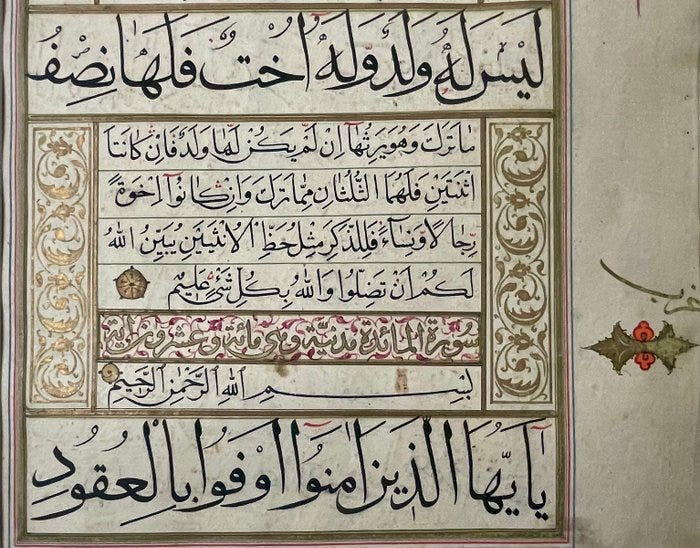 لَيْسَ لَهُ وَلَدٌ وَلَهُ اُخْتٌ فَلَهَا نِصْفُ
مَا تَرَكَ وَهُوَ يَرِثُهَا اِنْ لَمْ يَكُنْ لَهَا وَلَدٌ فَاِنْ كَانَتَا
اثْنَتَيْنِ فَلَهُمَا الثُّلُثَانِ مِمَّا تَرَكَ وَاِنْ كَانُوا اِخْوَةً
رِجَالًا وَنِسَاءً فَلِلذَّكَرِ مِثْلُ حَظِّ الْاُنْثَيَيْنِ يُبَيِّنُ اللهُ
لَكُمْ اَنْ تَضِلُّوا وَاللهُ بِكُلِّ شَيْءٍ عَلِيمٌ
سورة المائدة مدنية وهي مائة وعشرون اية
بِسْمِ اللهِ الرَّحْمٰنِ الرَّحِيمِ
يَا اَيُّهَا الَّذِينَ اٰمَنُوا اَوْفُوا بِالْعُقُودِ
حزب